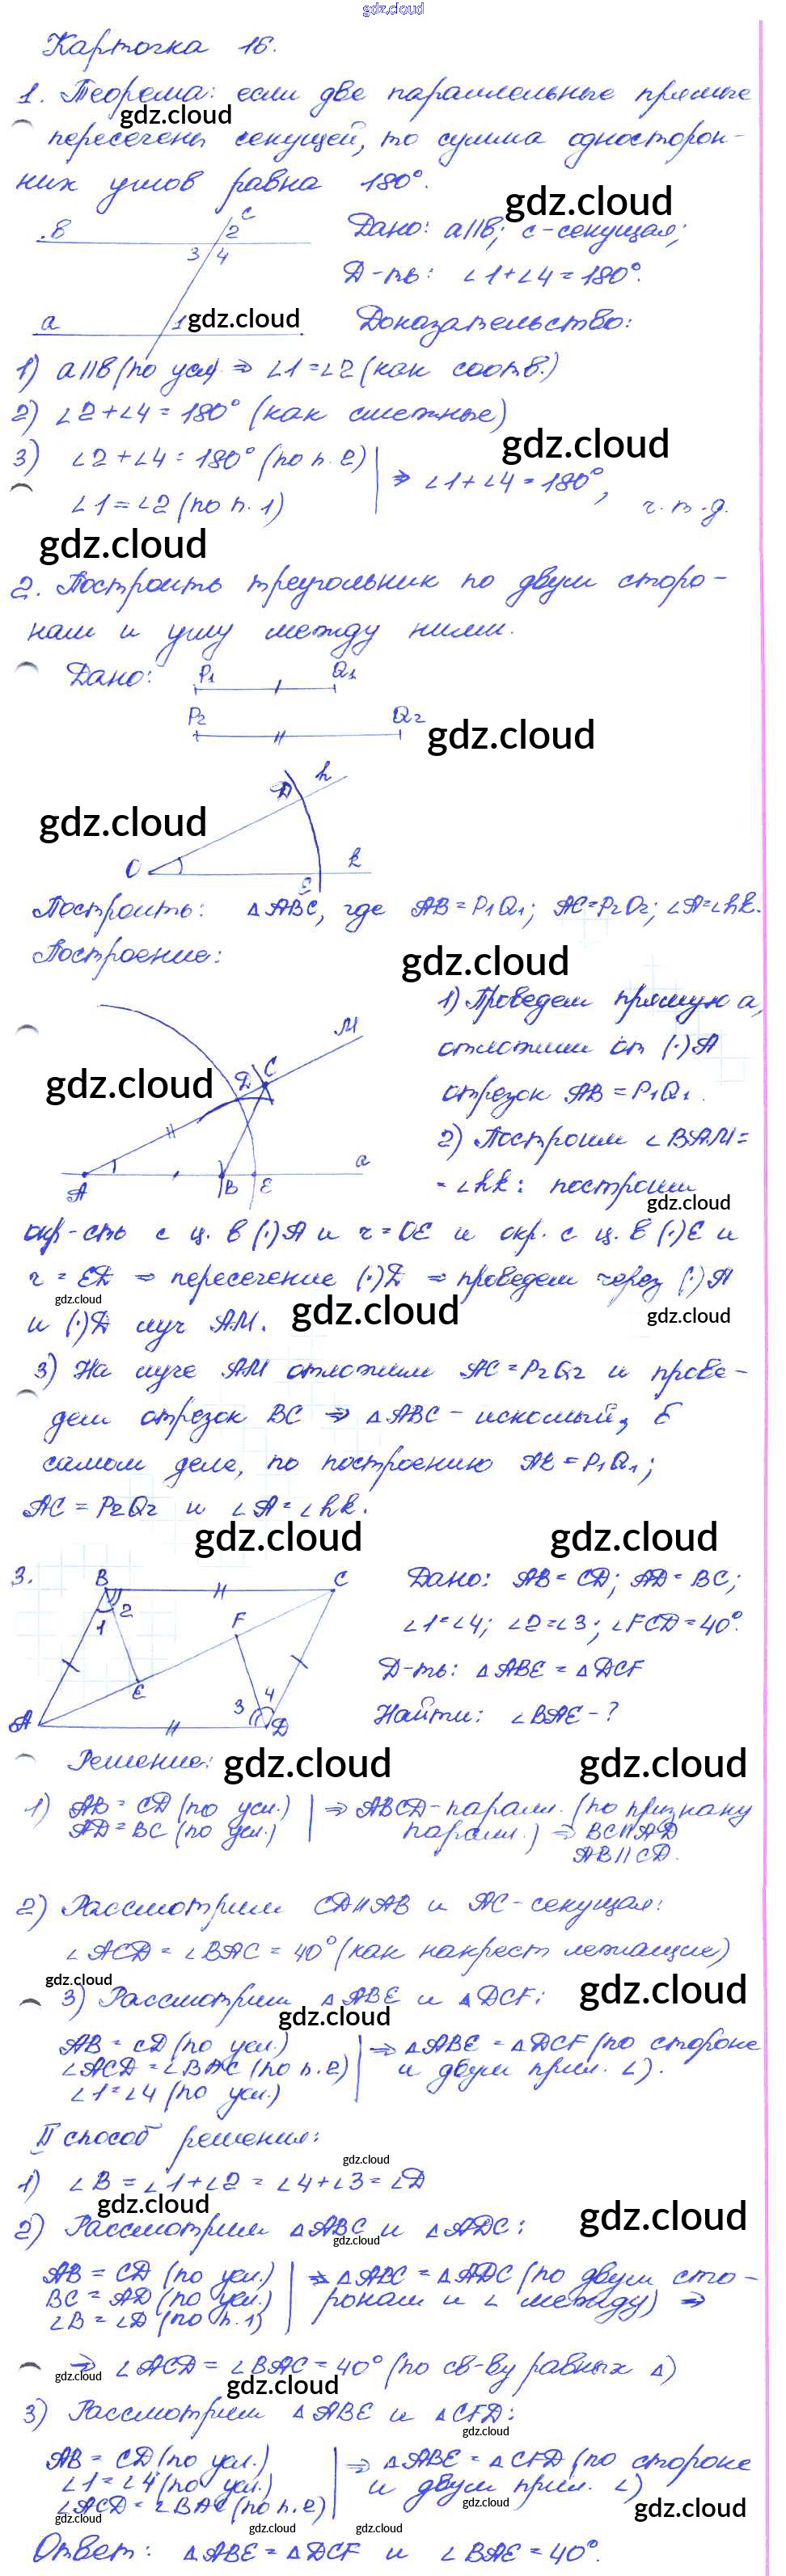 gdz.cloud
Карточка 16.
1. Теорема: если две параллельные прямые
gdz.cloud
пересечены секущей, то сумма односторон-
них углов равна 180°.
gdz.cloud
в c 2 Дано: a||в; c-секущая;
3 4 Д-ть: ∠1+∠4=180°.
a 1 gdz.cloud Доказательство:
1) a||в (по усл) ⇒ ∠1=∠2 (как соотв.)
2) ∠2+∠4=180° (как смежные)
gdz.cloud
3) ∠2+∠4=180° (по п. 2) ⇒ ∠1+∠4=180°,
∠1=∠2 (по п. 1) ч.т.д.
gdz.cloud
2. Построить треугольник по двум сторо-
нам и углу между ними.
Дано: P1 Q1
P2 Q2 gdz.cloud
D h
gdz.cloud
O k
E
Построить: △ABC, где AB=P1Q1; AC=P2Q2; ∠A=∠hk.
Построение: gdz.cloud
1) Проведем прямую a,
M отложим от (·)A
gdz.cloud D C отрезок AB=P1Q1.
2) Построим ∠BAM=
a
A B E =∠hk: построим
gdz.cloud
окр-сть с ц. в (·)A и r=OE и окр. с ц. в (·)E и
r=ED ⇒ пересечение (·)D ⇒ проведем через (·)A
gdz.cloud gdz.cloud gdz.cloud
и (·)D луч AM.
3) На луче AM отложим AC=P2Q2 и прове-
дем отрезок BC ⇒ △ABC-искомый, В
самом деле, по построению AB=P1Q1;
AC=P2Q2 и ∠A=∠hk.
gdz.cloud gdz.cloud
3. B C Дано: AB=CD; AD=BC;
1 2 F ∠1=∠4; ∠2=∠3; ∠FCD=40°.
E Д-ть: △ABE=△DCF
A 3 4 D Найти: ∠BAE-?
Решение: gdz.cloud gdz.cloud
1) AB=CD (по усл.) ⇒ ABCD-паралл. (по признаку
AD=BC (по усл.) паралл.) ⇒ BC||AD
AB||CD.
2) Рассмотрим CD||AB и AC-секущая:
∠ACD=∠BAC=40° (как накрест лежащие)
gdz.cloud gdz.cloud
3) Рассмотрим △ABE и △DCF:
gdz.cloud
AB=CD (по усл.) ⇒ △ABE=△DCF (по стороне
∠ACD=∠BAC (по п. 2) и двум прил. ∠).
∠1=∠4 (по усл.)
II способ решения:
gdz.cloud
1) ∠B=∠1+∠2=∠4+∠3=∠D
gdz.cloud gdz.cloud
2) Рассмотрим △ABC и △ADC:
gdz.cloud
AB=CD (по усл.) ⇒ △ABC=△ADC (по двум сто-
BC=AD (по усл.) ронам и ∠ между) ⇒
∠B=∠D (по п. 1)
⇒ ∠ACD=∠BAC=40° (по св-ву равных △)
gdz.cloud gdz.cloud
3) Рассмотрим △ABE и △CFD:
gdz.cloud
AB=CD (по усл.) ⇒ △ABE=△CFD (по стороне
∠1=∠4 (по усл.) и двум прил. ∠)
∠ACD=∠BAC (по п. 2)
gdz.cloud gdz.cloud gdz.cloud gdz.cloud gdz.cloud
Ответ: △ABE=△DCF и ∠BAE=40°.